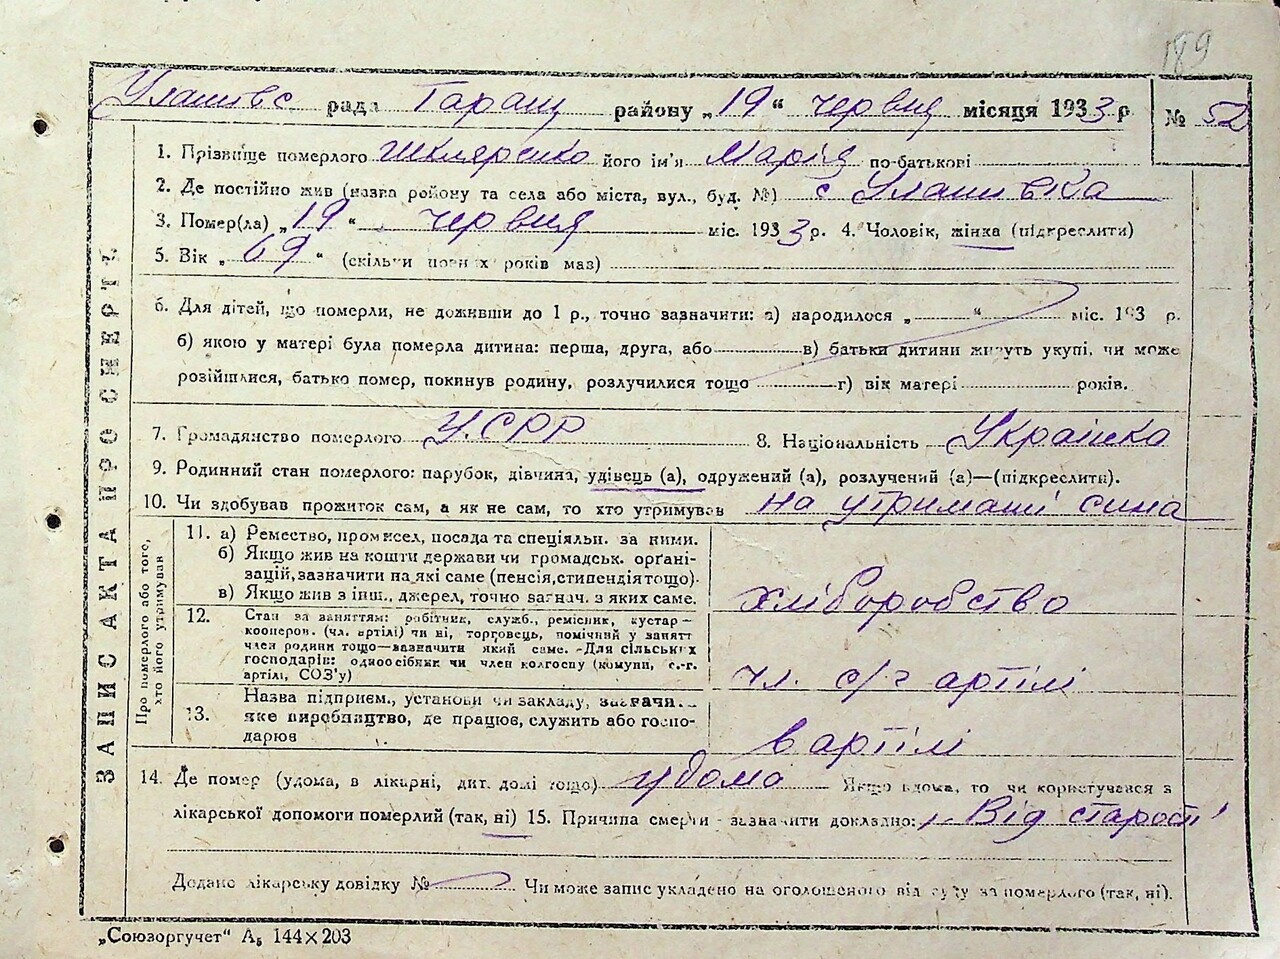 189
Улашівс рада Таращ району „19“ червня місяця 1933 р № 52
1. Прізвище померлого Шкляренко його ім'я Марія по-батькові
2. Де постійно жив (назва району та села або міста, вул., буд. №) с Улашівка
3. Помер(ла) „19“ червня міс. 1933 р. 4. Чоловік, жінка (підкреслити)
5. Вік „69“ (скільки повних років маз)
6. Для дітей, що померли, не доживши до 1 р., точно зазначити: а) народилося „ “ міс. 193 р.
б) якою у матері була померла дитина: перша, друга, або в) батьки дитини живуть укупі, чи може
розійшлися, батько помер, покинув родину, розлучилися тощо г) вік матері років.
7. Громадянство померлого УСРР 8. Національність Українка
9. Родинний стан померлого: парубок, дівчина, удівець (а), одружений (а), розлучений (а)—(підкреслити).
10. Чи здобував прожиток сам, а як не сам, то хто утримував на утримані сина
ЗАПИС АКТА ПРО СМЕРТЬ
Про померлого або того, хто його утримував
11. а) Ремество, промисел, посада та спеціяльн. за ними.
б) Якщо жив на кошти держави чи громадськ. орґані-
зацій, зазначити на які саме (пенсія, стипендія тощо).
в) Якщо жив з інш. джерел, точно зазнач. з яких саме.
хліборобство
12. Стан за заняттям: робітник, служб., ремісник, кустар-
кооперов. (чл. артілі) чи ні, торговець, помічний у занятт
член родини тощо—зазначити який саме. -Для сільських
господарів: одноосібник чи член колгоспу (комуни, с.-г.
артілі, СОЗ'у)
чл. с/г артілі
13. Назва підприєм., установи чи закладу, зазначи.
яке виробництво, де працює, служить або госпо-
дарює
в артілі
14. Де помер (удома, в лікарні, дит. домі тощо) удома Якщо вдома, то чи користувався з
лікарської допомоги померлий (так, ні) 15. Причина смерти - зазначити докладно: Від старості
Додано лікарську довідку № Чи може запис укладено на оголошеного від суду за померлого (так, ні).
„Союзоргучет“ А₅ 144×203